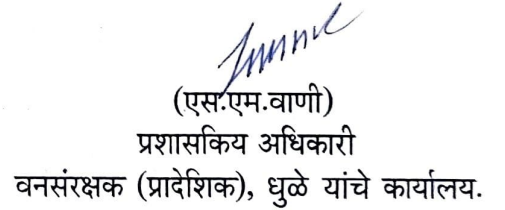 (एस.एम.वाणी)
प्रशासकिय अधिकारी
वनसंरक्षक (प्रादेशिक), धुळे यांचे कार्यालय.